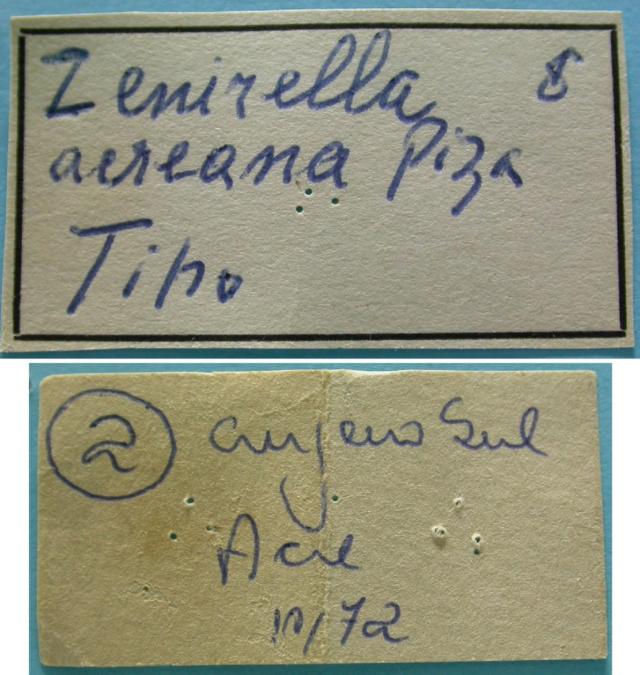 Zenirella
acreana Piza
Tipo
2 Cruzeiro Sul
Acre